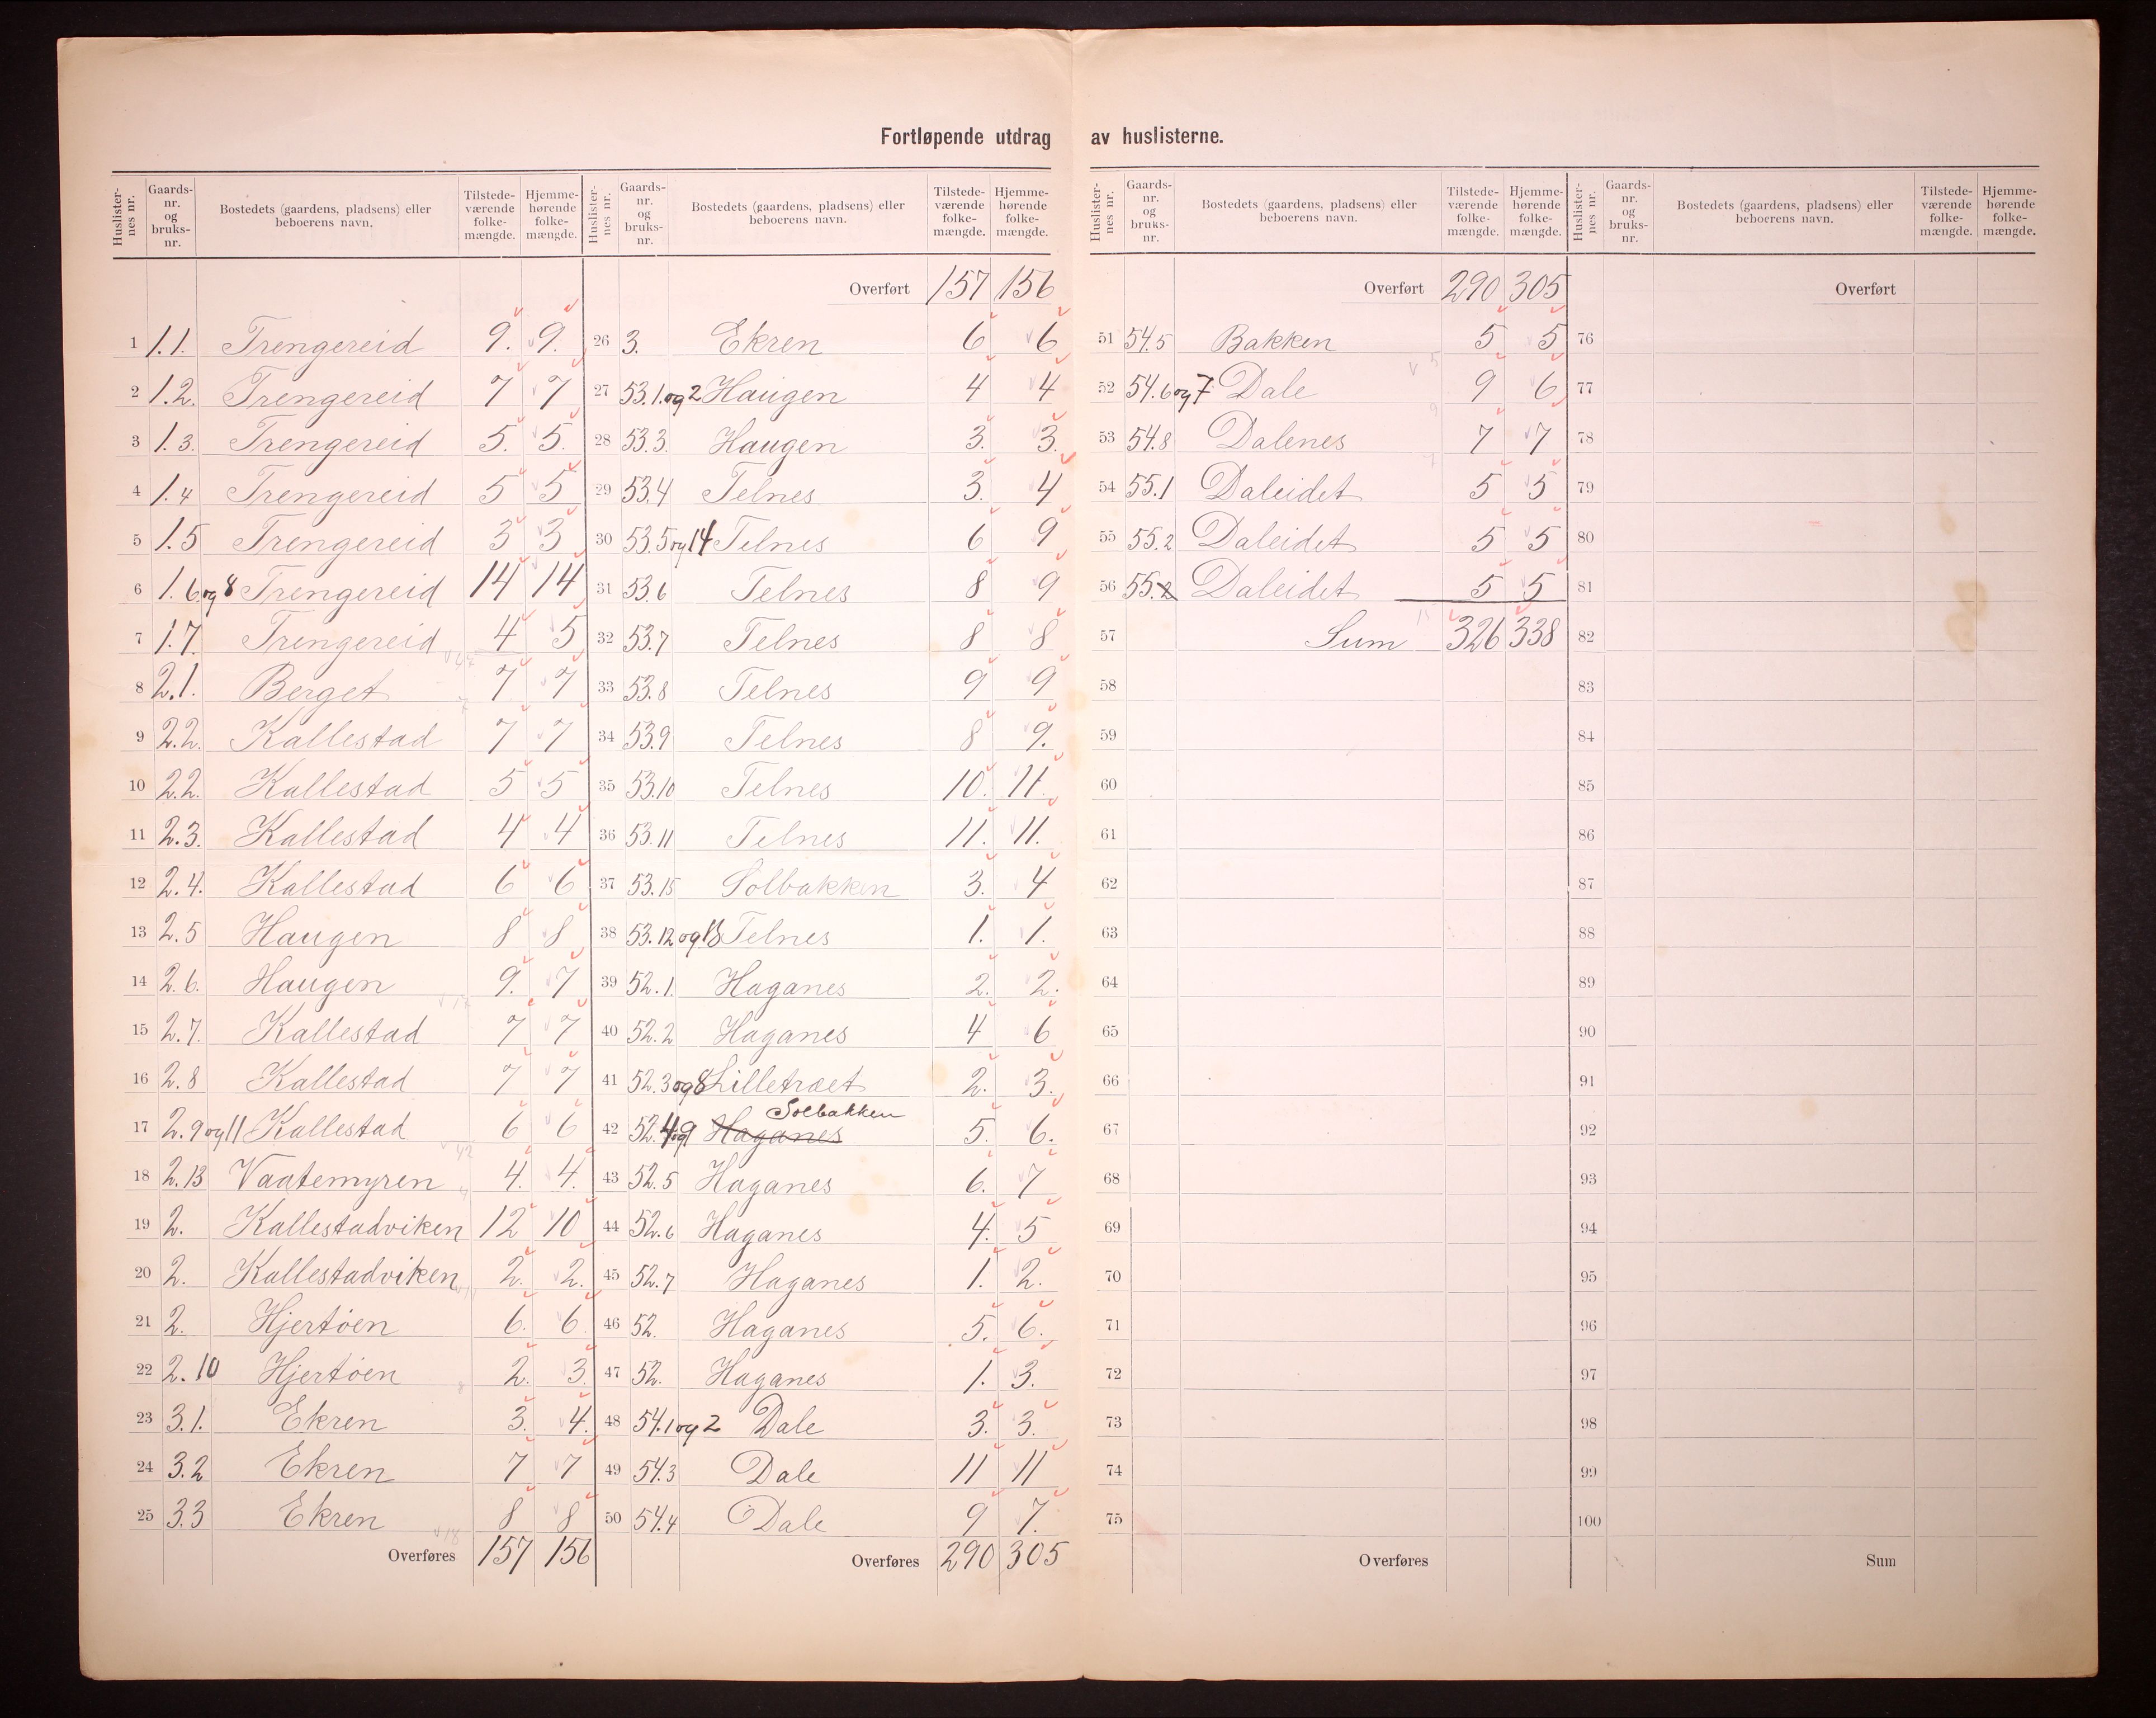 Fortløpende utdrag av huslisterne.
Huslister-nes nr. Gaards-nr. og bruks-nr. Bostedets (gaardens, pladsens) eller beboerens navn. Tilstede-værende folke-mængde. Hjemme-hørende folke-mængde.
1 1.1. Trengereid 9. 9.
2 1.2. Trengereid 7 7
3 1.3. Trengereid 5. 5.
4 1.4 Trengereid 5 5
5 1.5 Trengereid 3 3
6 1.6 og 8 Trengereid 14 14
7 1.7. Trengereid 4 5
8 2.1. Berget 7 7
9 2.2. Kallestad 7 7
10 2.2. Kallestad 5 5
11 2.3. Kallestad 4 4
12 2.4. Kallestad 6 6
13 2.5 Haugen 8 8
14 2.6. Haugen 9. 7
15 2.7. Kallestad 7 7
16 2.8 Kallestad 7 7
17 2.9 og 11 Kallestad 6 6
18 2.13 Vaatemyren 4. 4.
19 2. Kallestadviken 12 10
20 2. Kallestadviken 2. 2.
21 2. Hjertøen 6. 6.
22 2.10 Hjertøen 2. 3.
23 3.1. Ekren 3. 4.
24 3.2 Ekren 7 7
25 3.3 Ekren 8 8
Overføres 157 156
Huslister-nes nr. Gaards-nr. og bruks-nr. Bostedets (gaardens, pladsens) eller beboerens navn. Tilstede-værende folke-mængde. Hjemme-hørende folke-mængde.
Overført 157 156
26 3. Ekren 6 6
27 53.1. og 2 Haugen 4 4
28 53.3. Haugen 3. 3.
29 53.4 Telnes 3. 4
30 53.5 og 14 Telnes 6 9
31 53.6 Telnes 8 9
32 53.7 Telnes 8 8
33 53.8 Telnes 9 9
34 53.9 Telnes 8 9.
35 53.10 Telnes 10. 11.
36 53.11 Telnes 11. 11.
37 53.15 Solbakken 3. 4
38 53.12 og 13 Telnes 1. 1.
39 52.1. Haganes 2. 2.
40 52.2 Haganes 4 6
41 52.3 og 8 Lilletræet 2. 3.
Solbakken
42 52.4 og 9 Haganes 5. 6.
43 52.5 Haganes 6. 7
44 52.6 Haganes 4. 5
45 52.7 Haganes 1. 2.
46 52. Haganes 5. 6.
47 52. Haganes 1. 3.
48 54.1 og 2 Dale 3. 3.
49 54.3 Dale 11 11
50 54.4 Dale 9 7.
Overføres 290 305
Huslister-nes nr. Gaards-nr. og bruks-nr. Bostedets (gaardens, pladsens) eller beboerens navn. Tilstede-værende folke-mængde. Hjemme-hørende folke-mængde.
Overført 290 305
51 54.5 Bakken 5 5
52 54.6 og 7 Dale 9 6
53 54.8 Dalenes 7 7
54 55.1 Daleidet 5 5
55 55.2 Daleidet 5 5
56 55.2 Daleidet 5 5
57 Sum 326 338
58
59
60
61
62
63
64
65
66
67
68
69
70
71
72
73
74
75
Overføres
Huslister-nes nr. Gaards-nr. og bruks-nr. Bostedets (gaardens, pladsens) eller beboerens navn. Tilstede-værende folke-mængde. Hjemme-hørende folke-mængde.
Overført
76
77
78
79
80
81
82
83
84
85
86
87
88
89
90
91
92
93
94
95
96
97
98
99
100
Sum